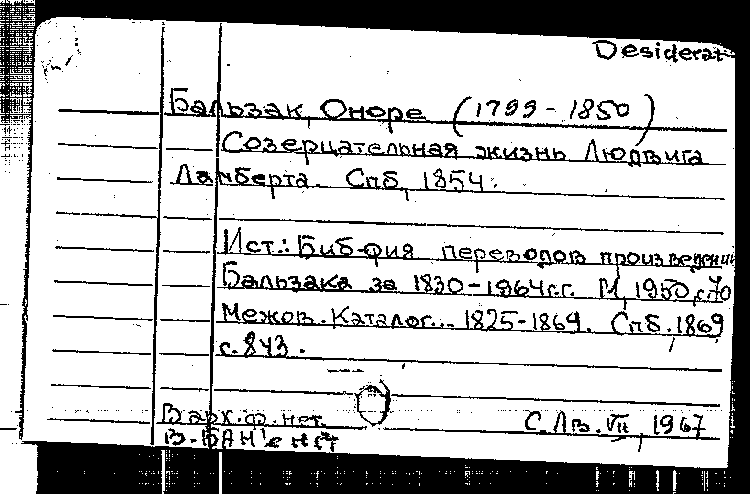 Desiderat
Бальзак, Оноре (1799-1850)
Созерцательная жизнь Людвига
Ламберта. Спб, 1854.
Ист.: Биб-фия переводов произведений
Бальзака за 1830-1964гг. М, 1950 с.70
Межов. Каталог... 1825-1869. Спб. 1869,
с. 843.
В арх. ф. нет.
С. Лв. VII, 1967
В-БАН'е нет